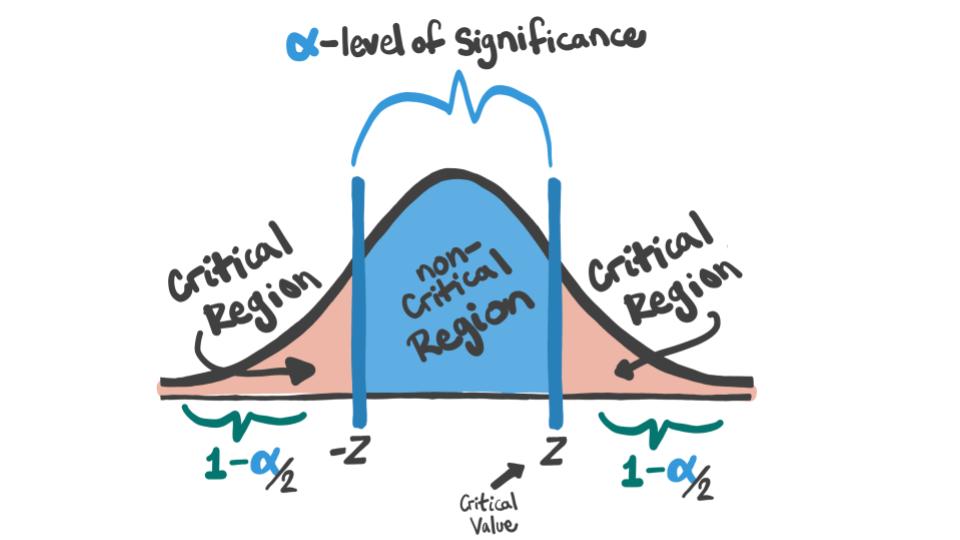 α-level of Significance
Critical
Region
non-
Critical
Region
Critical
Region
1-α/2
-Z
Z
1-α/2
Critical
Value